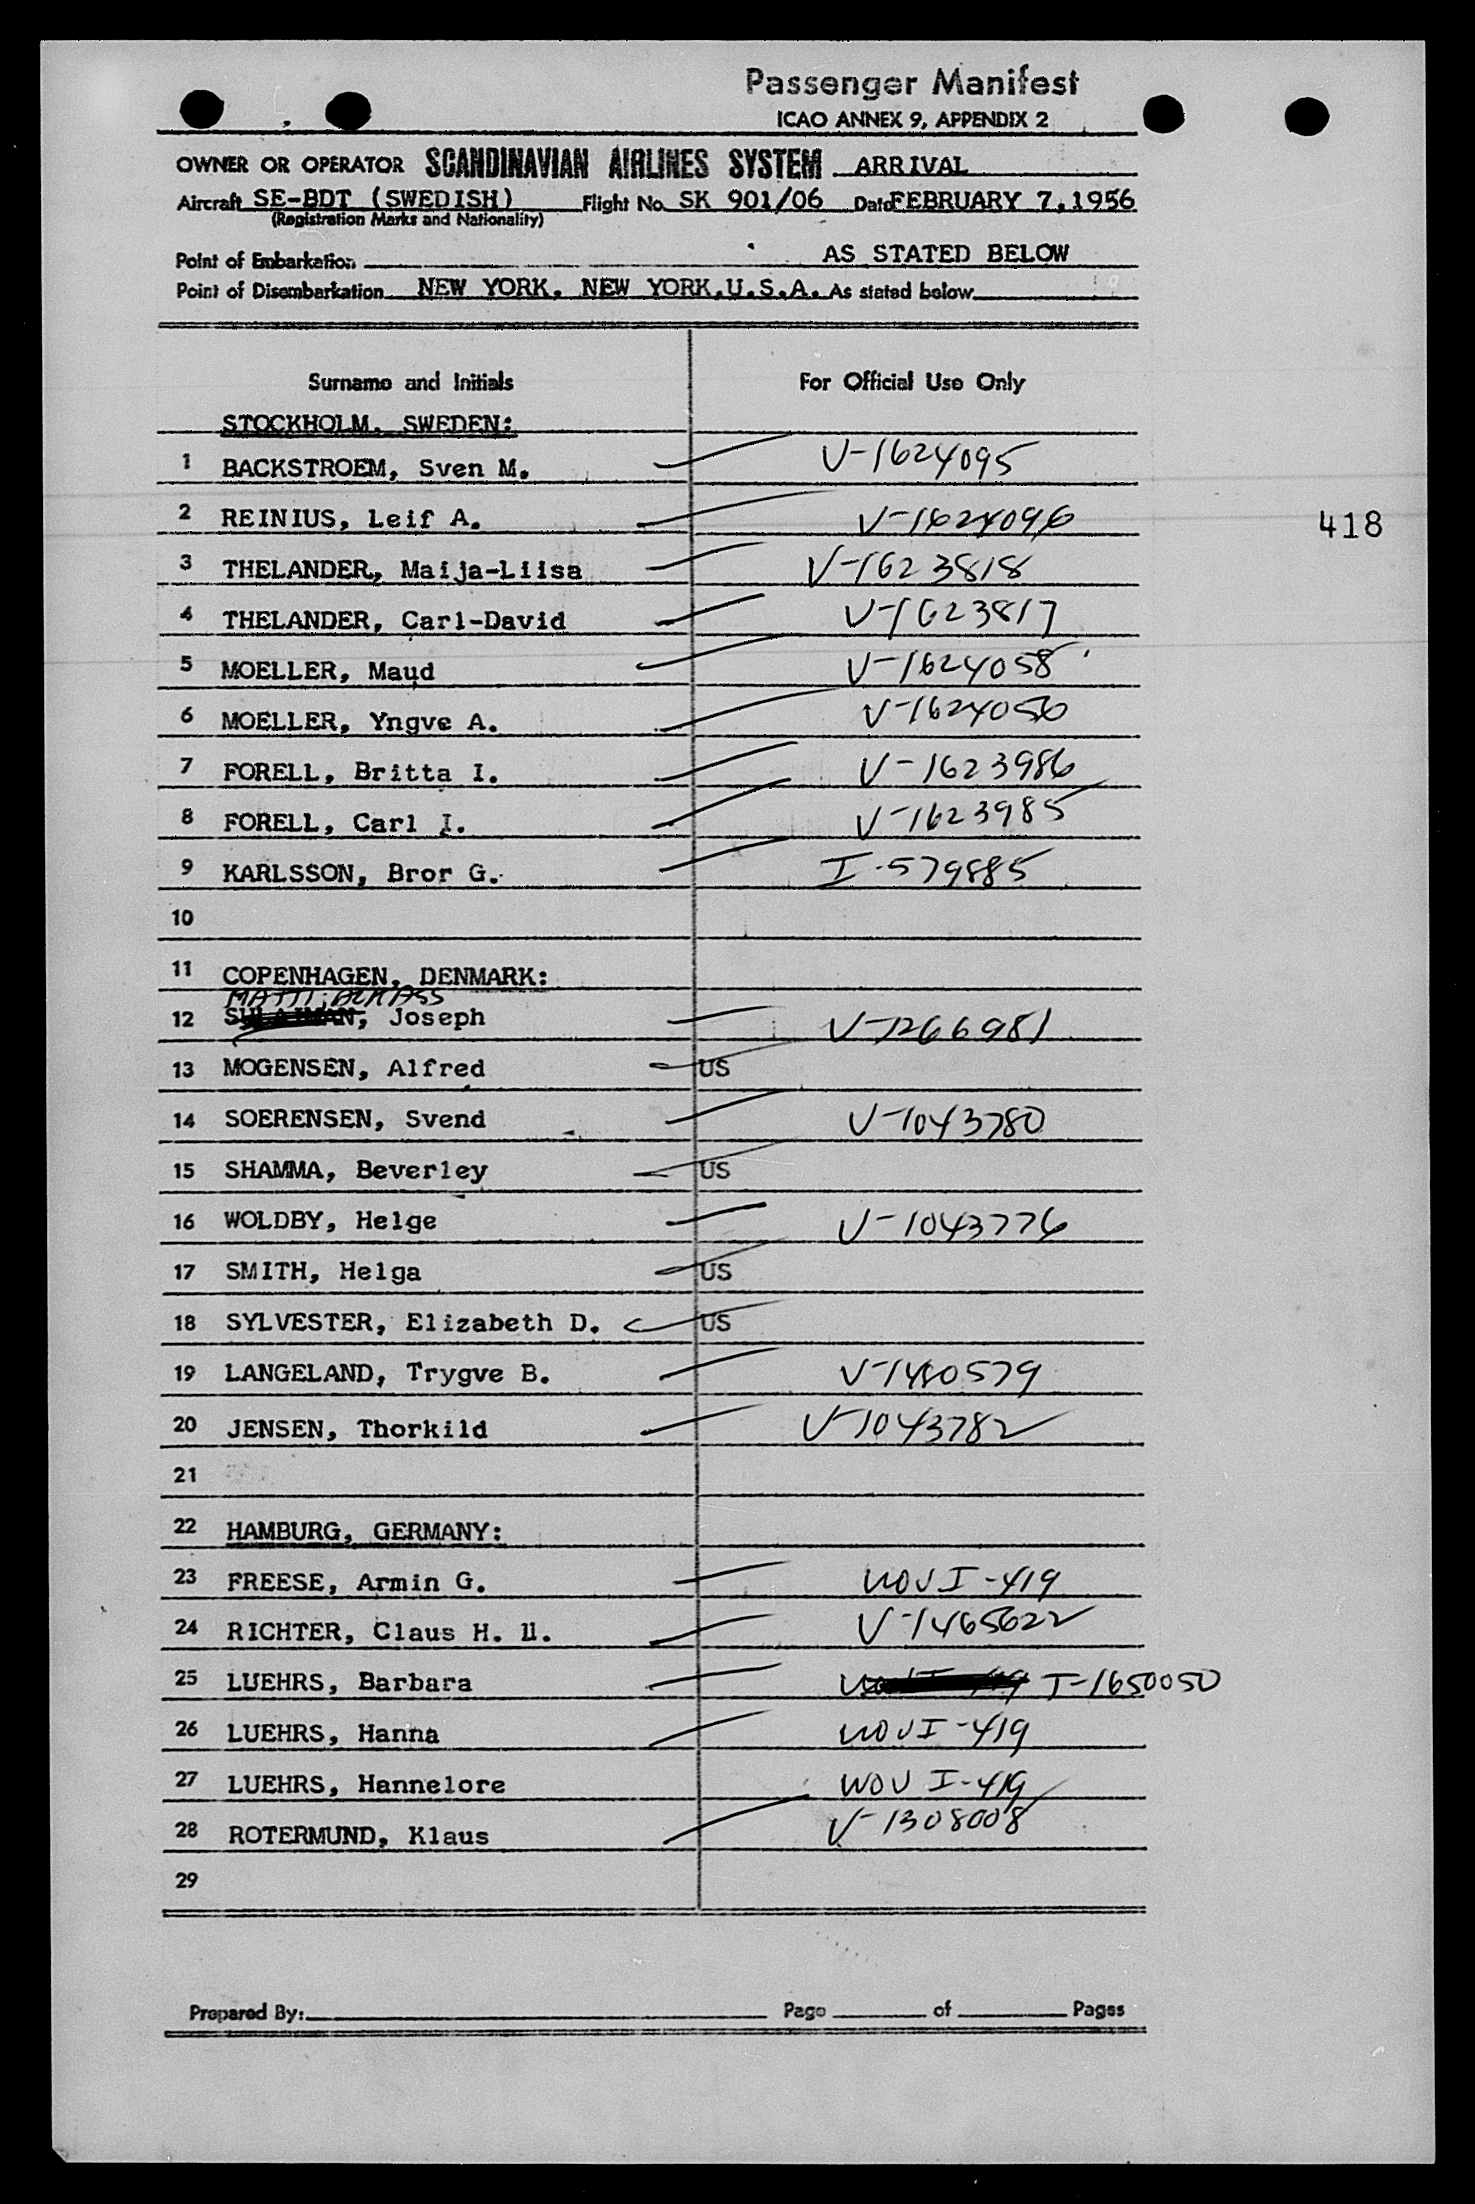 Passenger Manifest
ICAO ANNEX 9, APPENDIX 2
OWNER OR OPERATOR SCANDINAVIAN AIRLINES SYSTEM ARRIVAL
Aircraft SE-BDT (SWEDISH) Flight No. SK 901/06 Date FEBRUARY 7,1956
(Registration Marks and Nationality)
Point of Embarkation AS STATED BELOW
Point of Disembarkation NEW YORK, NEW YORK,U.S.A. As stated below
Surname and Initials For Official Use Only
STOCKHOLM, SWEDEN:
1 BACKSTROEM, Sven M. V-1624095
2 REINIUS, Leif A. V-1624096
418
3 THELANDER, Maija-Liisa V-1623818
4 THELANDER, Carl-David V-1623817
5 MOELLER, Maud V-1624058
6 MOELLER, Yngve A. V-1624050
7 FORELL, Britta I. V-1623986
8 FORELL, Carl I. V-1623985
9 KARLSSON, Bror G. I-579885
10
11 COPENHAGEN, DENMARK:
MATTI,
12 SULAIMAN, Joseph V-1266981
13 MOGENSEN, Alfred US
14 SOERENSEN, Svend V-1043780
15 SHAMMA, Beverley US
16 WOLDBY, Helge V-1043776
17 SMITH, Helga US
18 SYLVESTER, Elizabeth D. US
19 LANGELAND, Trygve B. V-1480579
20 JENSEN, Thorkild V-1043782
21
22 HAMBURG, GERMANY:
23 FREESE, Armin G. WOV I-419
24 RICHTER, Claus H. U. V-1465622
25 LUEHRS, Barbara I-1650050
26 LUEHRS, Hanna WOV I-419
27 LUEHRS, Hannelore WOV I-419
28 ROTERMUND, Klaus V-1308008
29
Prepared By: Page of Pages